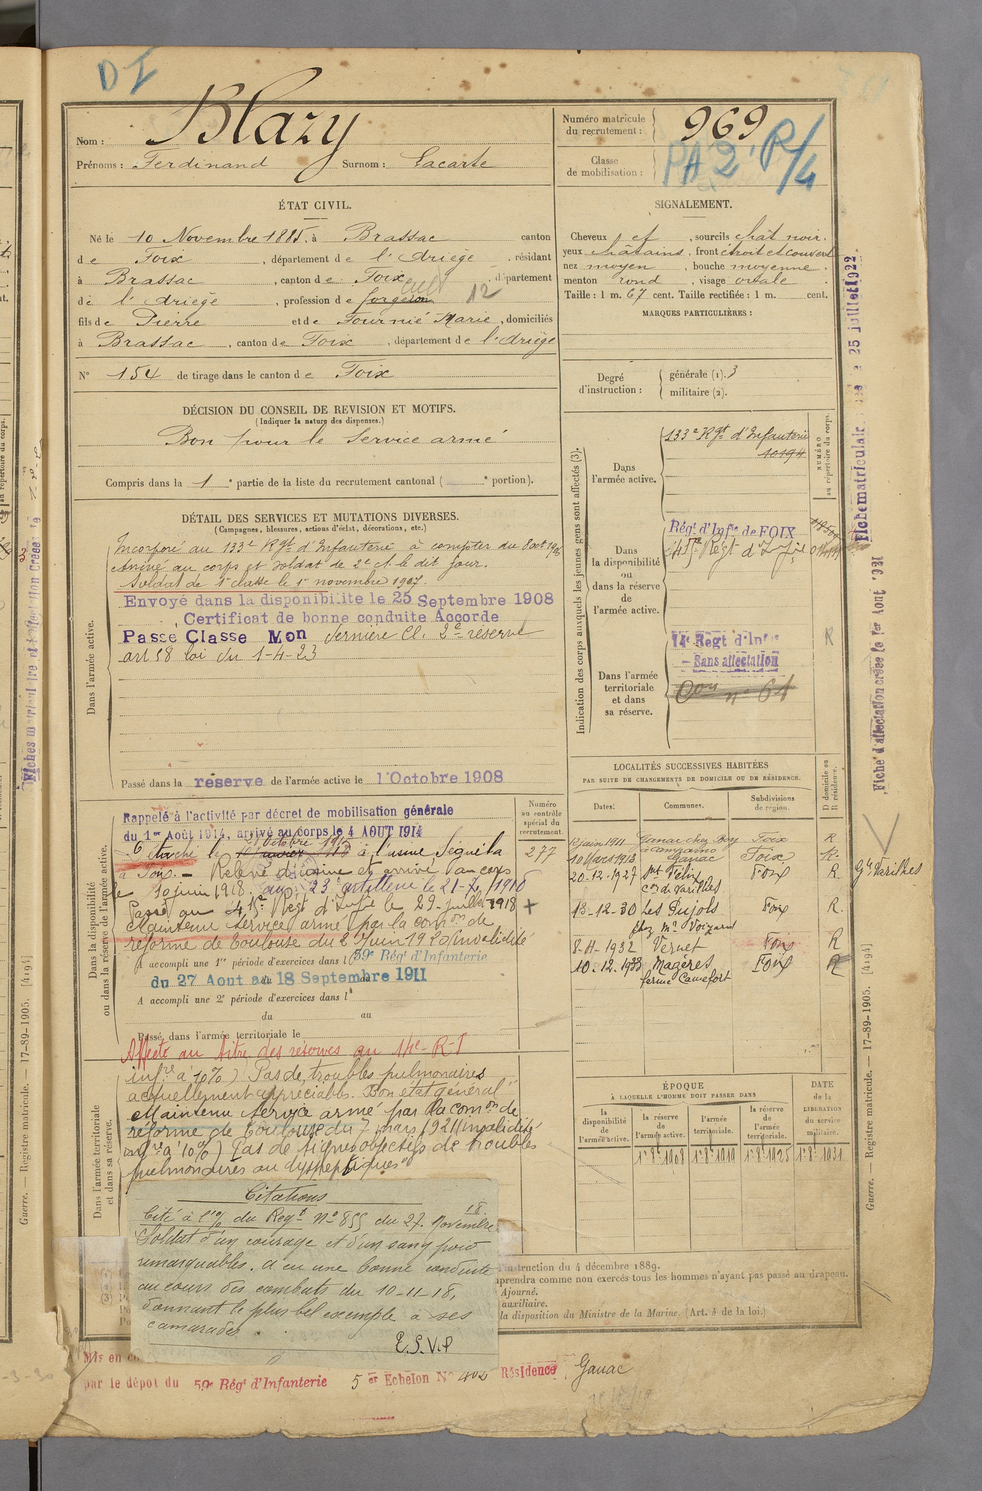 DI
Nom : Blazy
Prénoms : Ferdinand Surnom : Lacarte
Numéro matricule du recrutement : 969
Classe de mobilisation : PA 2 R/4
ÉTAT CIVIL.
Né le 10 Novembre 1885, à Brassac canton
de Foix, département de l'Ariège, résidant
à Brassac, canton de Foix, département
de l'Ariège, profession de forgeron cult 12
fils de Pierre et de Fournié Marie, domiciliés
à Brassac, canton de Foix, département de l'Ariège
N° 154 de tirage dans le canton de Foix
SIGNALEMENT.
Cheveux et, sourcils chât noir.
yeux châtains, front étroit et couvert
nez moyen, bouche moyenne
menton rond, visage ovale
Taille : 1 m. 67 cent. Taille rectifiée : 1 m. cent.
MARQUES PARTICULIÈRES :
Degré d'instruction : générale (1). 3
militaire (2).
DÉCISION DU CONSEIL DE REVISION ET MOTIFS.
(Indiquer la nature des dispenses.)
Bon pour le service armé
Compris dans la 1e partie de la liste du recrutement cantonal ( e portion).
DÉTAIL DES SERVICES ET MUTATIONS DIVERSES.
(Campagnes, blessures, actions d'éclat, décorations, etc.)
Dans l'armée active.
Incorporé au 133e Rgt d'Infanterie à compter du 8 oct 1906
Arrivé au corps et soldat de 2e cl. le dit jour.
Soldat de 1e classe le 1er novembre 1907.
Envoyé dans la disponibilité le 25 Septembre 1908
Certificat de bonne conduite Accordé
Passé Classe Mon dernière Cl. 2e réserve
art 58 loi du 1-4-23
Passé dans la réserve de l'armée active le 1 Octobre 1908
Indication des corps auxquels les jeunes gens sont affectés (3).
NUMÉRO au répertoire du corps.
Dans l'armée active.
133e Rgt d'Infanterie
10194
Dans la disponibilité ou dans la réserve de l'armée active.
Régt d'Infie de FOIX
Dans l'armée territoriale et dans sa réserve.
14e Régt d'Infie
Sans affectation
R
LOCALITÉS SUCCESSIVES HABITÉES
PAR SUITE DE CHANGEMENTS DE DOMICILE OU DE RÉSIDENCE.
Dates. Communes. Subdivisions de région. D domicile ou R résidence.
10 Mars 1913 Ganac Foix R
20-12-1927 St Félix Foix R
con de Varilhes
13-12-30 Les Pujols Foix R.
8-11-1932 Vernet Foix R
10.12.1933 Mazères Foix R
ferme Camefort
Gie Varilhes
Dans la disponibilité ou dans la réserve de l'armée active.
Numéro au contrôle spécial du recrutement.
277
Rappelé à l'activité par décret de mobilisation générale
du 1er Août 1914, arrivé au corps le 4 AOUT 1914
Détaché le Octobre à l'usine Sequela
à Foix. — Relevé d'usine et arrivé au corps
le 30 juin 1918. au 23e artillerie le 21-7-1918
Passé au Régt d'Infie le 29 juillet 1918
Maintenu service armé par la comon de
réforme de Toulouse du 2 Juin 1920 (invalidité
A accompli une 1re période d'exercices dans le 59e Régt d'Infanterie
du 27 Aout au 18 Septembre 1911
A accompli une 2e période d'exercices dans l
du au
Passé dans l'armée territoriale le
Affecté au titre des réserves au 14e R-I
Dans l'armée territoriale et dans sa réserve.
infre à 10%) Pas de troubles pulmonaires
actuellement appréciables. Bon état général
Maintenu service armé par la comon de
réforme de Toulouse du 7 mars 1921 (invalidité
infre à 10%) Pas de signes objectifs de troubles
pulmonaires ou dyspeptiques
ÉPOQUE
À LAQUELLE L'HOMME DOIT PASSER DANS
la disponibilité de l'armée active. la réserve de l'armée active. l'armée territoriale. la réserve de l'armée territoriale.
DATE de la LIBÉRATION du service militaire.
1er 8bre 1908 1er 8bre 1919 1er 8bre 1925 1er 8bre 1931
Citations
Cité à l'o/ du Régt No 855 du 27 Novembre 18.
Soldat d'un courage et d'un sang froid
remarquables. A eu une bonne conduite
au cours des combats du 10-11-18,
donnant le plus bel exemple à ses
camarades.
E.S.V.P
l'instruction du 4 décembre 1889.
prendra comme non exercés tous les hommes n'ayant pas passé au drapeau.
Ajourné.
auxiliaire.
la disposition du Ministre de la Marine. (Art. 4 de la loi.)
Mis en co
par le dépot du 59e Régt d'Infanterie 5er Echelon No 402 Résidence Ganac
Fiche matriculaire le 25 juillet 1922
Fiche d'affectation créée le 1er Aout 1921
Guerre. — Registre matricule. — 17-89-1905. [4194]
Guerre. — Registre matricule. — 17-89-1905. [4194]